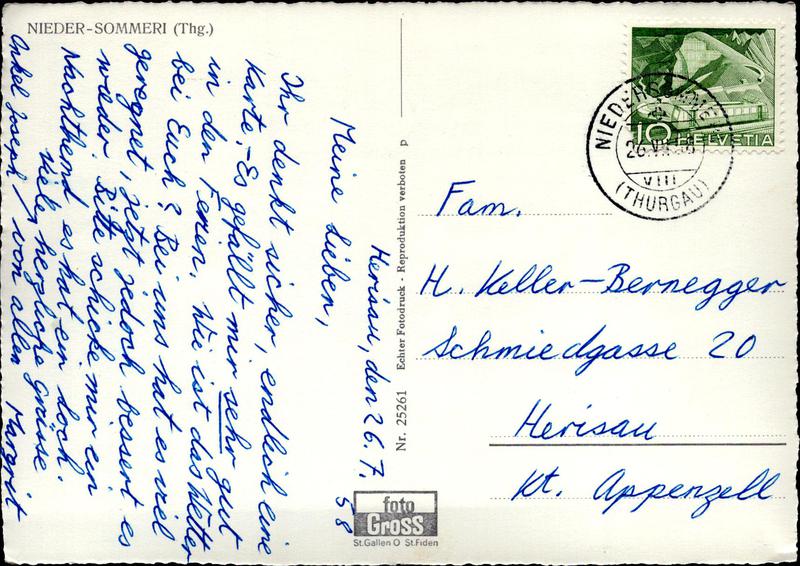 NIEDER-SOMMERI (Thg.)
Herisau, den 26.7.58
Meine Lieben,
Ihr denkt sicher, endlich eine
Karte.- Es gefällt mir sehr gut
in den Ferien. Wie ist das Wetter
bei Euch? Bei uns hat es viel
geregnet, jetzt jedoch bessert es
wieder. Bitte schicke mir ein
Nachthemd es hat ein Loch.
Viele herzliche Grüsse
Onkel Joseph / von allen Margrit
Nr. 25261 Echter Fotodruck - Reproduktion verboten p
foto
Gross
St.Gallen O St.Fiden
10 HELVETIA
VIII
(THURGAU)
Fam.
H. Keller-Bernegger
Schmiedgasse 20
Herisau
Kt. Appenzell